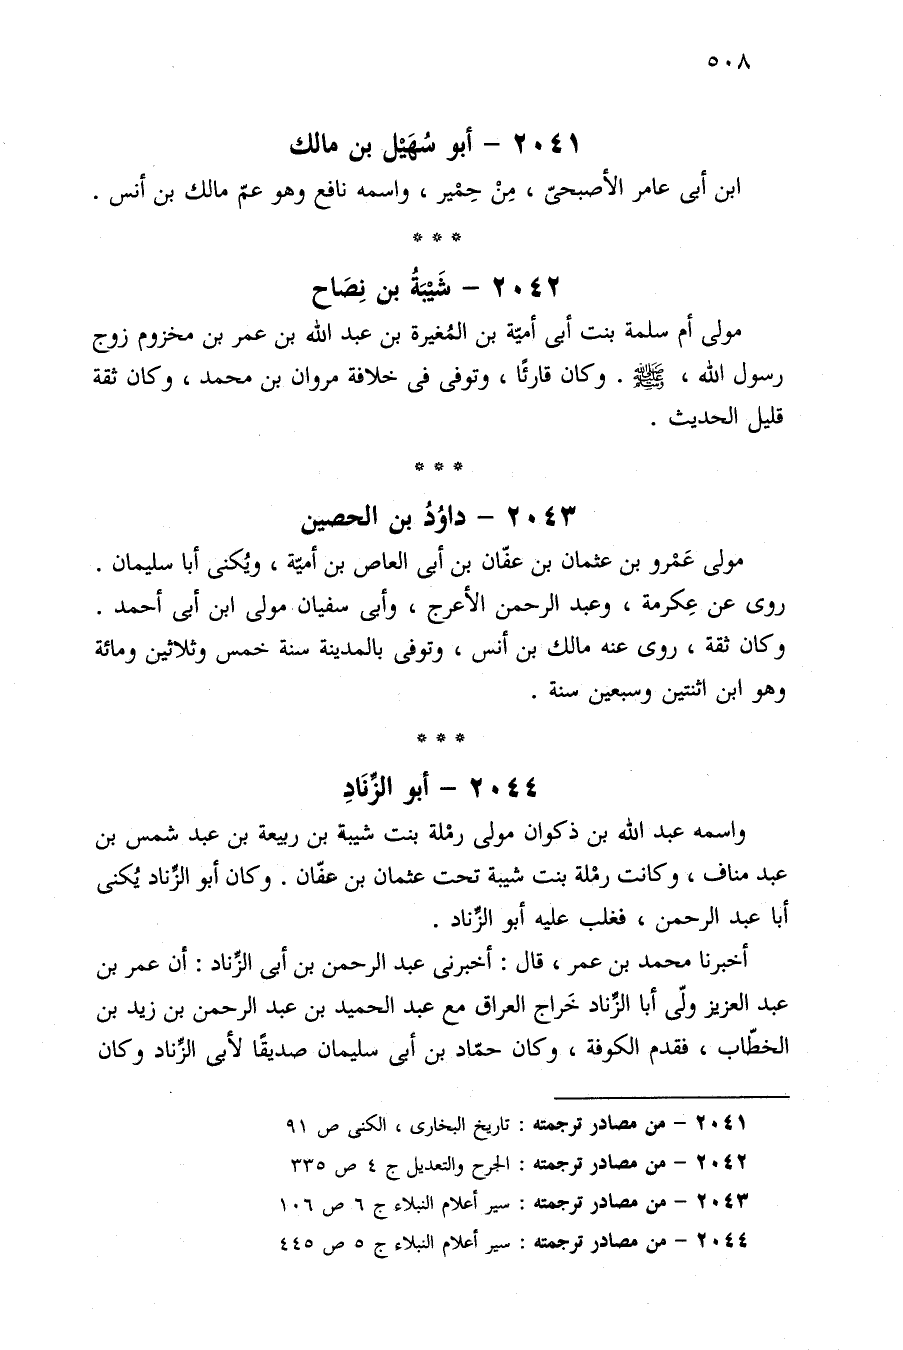 ٥٠٨
٢٠٤١ - أبو سُهَيْل بن مالك
ابن أبى عامر الأصبحىّ ، مِنْ حِمْير ، واسمه نافع وهو عمّ مالك بن أنس .
* * *
٢٠٤٢ - شَيْبَةُ بن نِصَاح
مولى أم سلمة بنت أبى أميّة بن المُغيرة بن عبد الله بن عمر بن مخزوم زوج
رسول الله ، ﷺ . وكان قارئًا ، وتوفى فى خلافة مروان بن محمد ، وكان ثقة
قليل الحديث .
* * *
٢٠٤٣ - داوُدُ بن الحصين
مولى عَمْرو بن عثمان بن عفّان بن أبى العاص بن أميّة ، ويُكنى أبا سليمان .
روى عن عِكرمة ، وعبد الرحمن الأعرج ، وأبى سفيان مولى ابن أبى أحمد .
وكان ثقة ، روى عنه مالك بن أنس ، وتوفى بالمدينة سنة خمس وثلاثين ومائة
وهو ابن اثنتين وسبعين سنة .
* * *
٢٠٤٤ - أبو الزِّنَادِ
واسمه عبد الله بن ذكوان مولى رمْلة بنت شيبة بن ربيعة بن عبد شمس بن
عبد مناف ، وكانت رمْلة بنت شيبة تحت عثمان بن عفّان . وكان أبو الزِّناد يُكنى
أبا عبد الرحمن ، فغلب عليه أبو الزِّناد .
أخبرنا محمد بن عمر ، قال : أخبرنى عبد الرحمن بن أبى الزِّناد : أن عمر بن
عبد العزيز ولّى أبا الزِّناد خَراج العراق مع عبد الحميد بن عبد الرحمن بن زيد بن
الخطّاب ، فقدم الكوفة ، وكان حمّاد بن أبى سليمان صديقًا لأبى الزِّناد وكان
٢٠٤١ - من مصادر ترجمته : تاريخ البخارى ، الكنى ص ٩١
٢٠٤٢ - من مصادر ترجمته : الجرح والتعديل ج ٤ ص ٣٣٥
٢٠٤٣ - من مصادر ترجمته : سير أعلام النبلاء ج ٦ ص ١٠٦
٢٠٤٤ - من مصادر ترجمته : سير أعلام النبلاء ج ٥ ص ٤٤٥